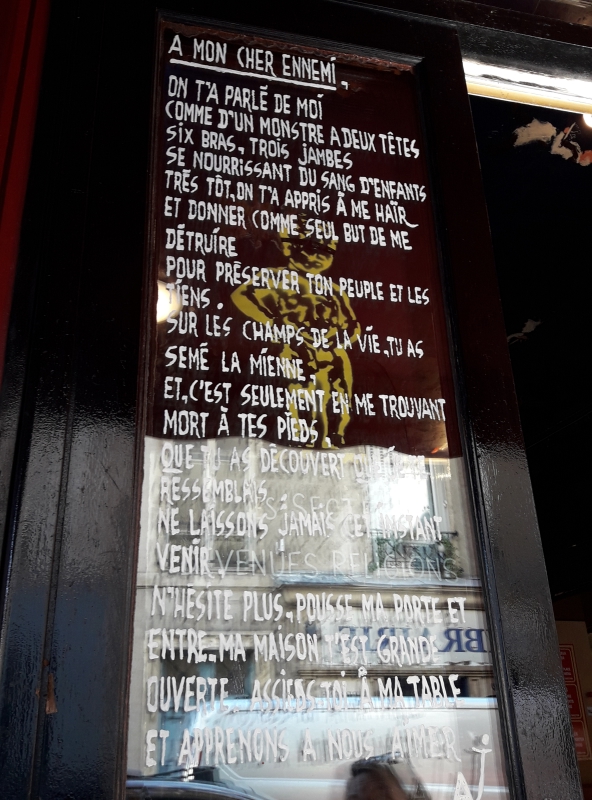 A MON CHER ENNEMI,
ON T'A PARLÉ DE MOI
COMME D'UN MONSTRE A DEUX TÊTES
SIX BRAS, TROIS JAMBES
SE NOURRISSANT DU SANG D'ENFANTS
TRÈS TÔT, ON T'A APPRIS À ME HAÏR
ET DONNER COMME SEUL BUT DE ME
DÉTRUIRE
POUR PRÉSERVER TON PEUPLE ET LES
TIENS.
SUR LES CHAMPS DE LA VIE, TU AS
SEMÉ LA MIENNE,
ET, C'EST SEULEMENT EN ME TROUVANT
MORT À TES PIEDS,
QUE TU AS DÉCOUVERT
RESSEMBLAIS
NE LAISSONS JAMAIS CET INSTANT
VENIR.
VENUES RELIGIONS
N'HÉSITE PLUS, POUSSE MA PORTE ET
ENTRE, MA MAISON T'EST GRANDE
OUVERTE, ASSIEDS TOI À MA TABLE
ET APPRENONS A NOUS AIMER